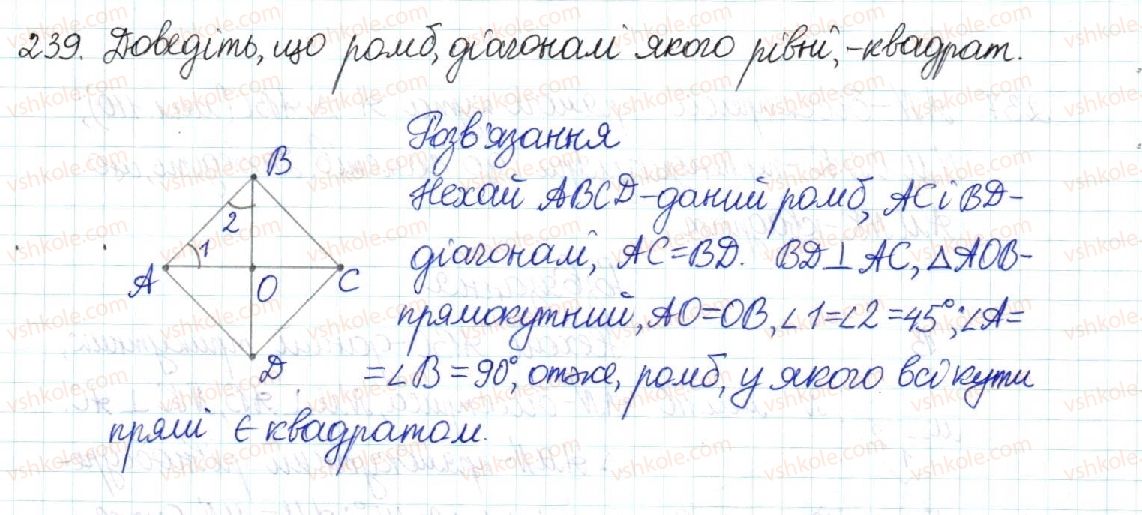 239. Доведіть, що ромб, діагоналі якого рівні, - квадрат.
Розв'язання
B
2
1
A
O
C
D
Нехай ABCD - даний ромб, AC і BD -
діагоналі, AC = BD. BD ⊥ AC, △AOB -
прямокутний, AO = OB, ∠1 = ∠2 = 45°; ∠A =
= ∠B = 90°, отже, ромб, у якого всі кути
прямі є квадратом.